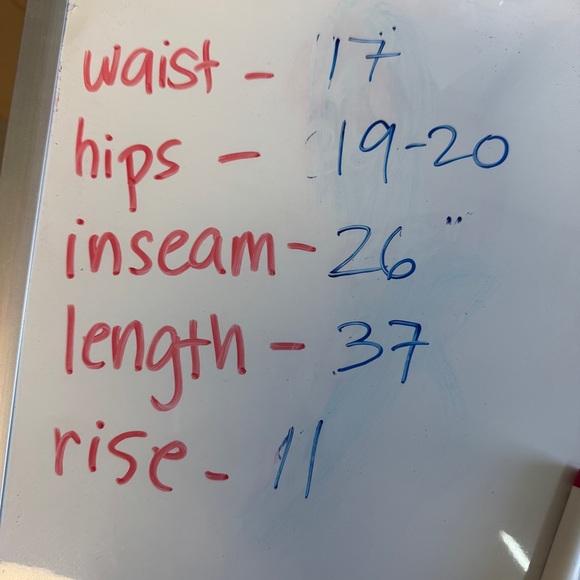 waist - 17
hips - 19-20
inseam - 26
length - 37
rise - 11